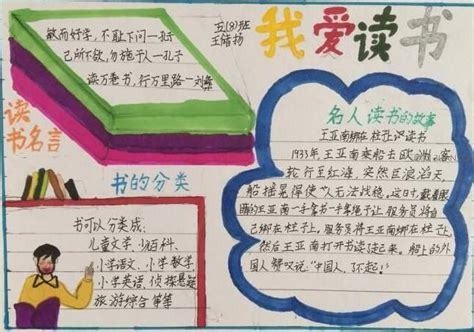 我爱读书
五(8)班
王储扬
敏而好学，不耻下问一孔子
己所不欲，勿施于人一孔子
读万卷书，行万里路一刘彝
读
书名言
书的分类
书可以分类成：
儿童文学、少儿百科、
小学语文、小学数学、
小学英语、侦探悬疑
旅游综合等等
名人读书的故事
王亚南绑在柱子上读书
1933年，王亚南乘船去欧洲。客
轮行至红海，突然巨浪滔天，
船摇晃得使人无法站稳。这时，戴着眼
镜的王亚南一手拿书一手拿绳子让服务员将自
己绑在柱子上。服务员将王亚南绑在柱子上，
然后王亚南打开书读起来。船上的外
国人赞叹说："中国人，了不起！"